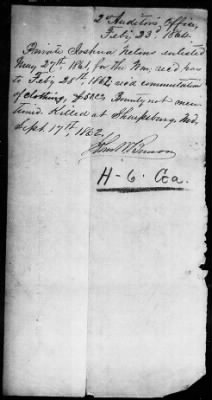 2d Auditors Office,
Feby 23d 1864.
Private Joshua Nelms enlisted
May 27th 1861, for the War, rec'd pay
to Feby 28th 1862, and commutation
of clothing, $50. Bounty not men-
tioned. Killed at Sharpsburg, Md.
Sept. 17th, 1862.
H-6. Ga.